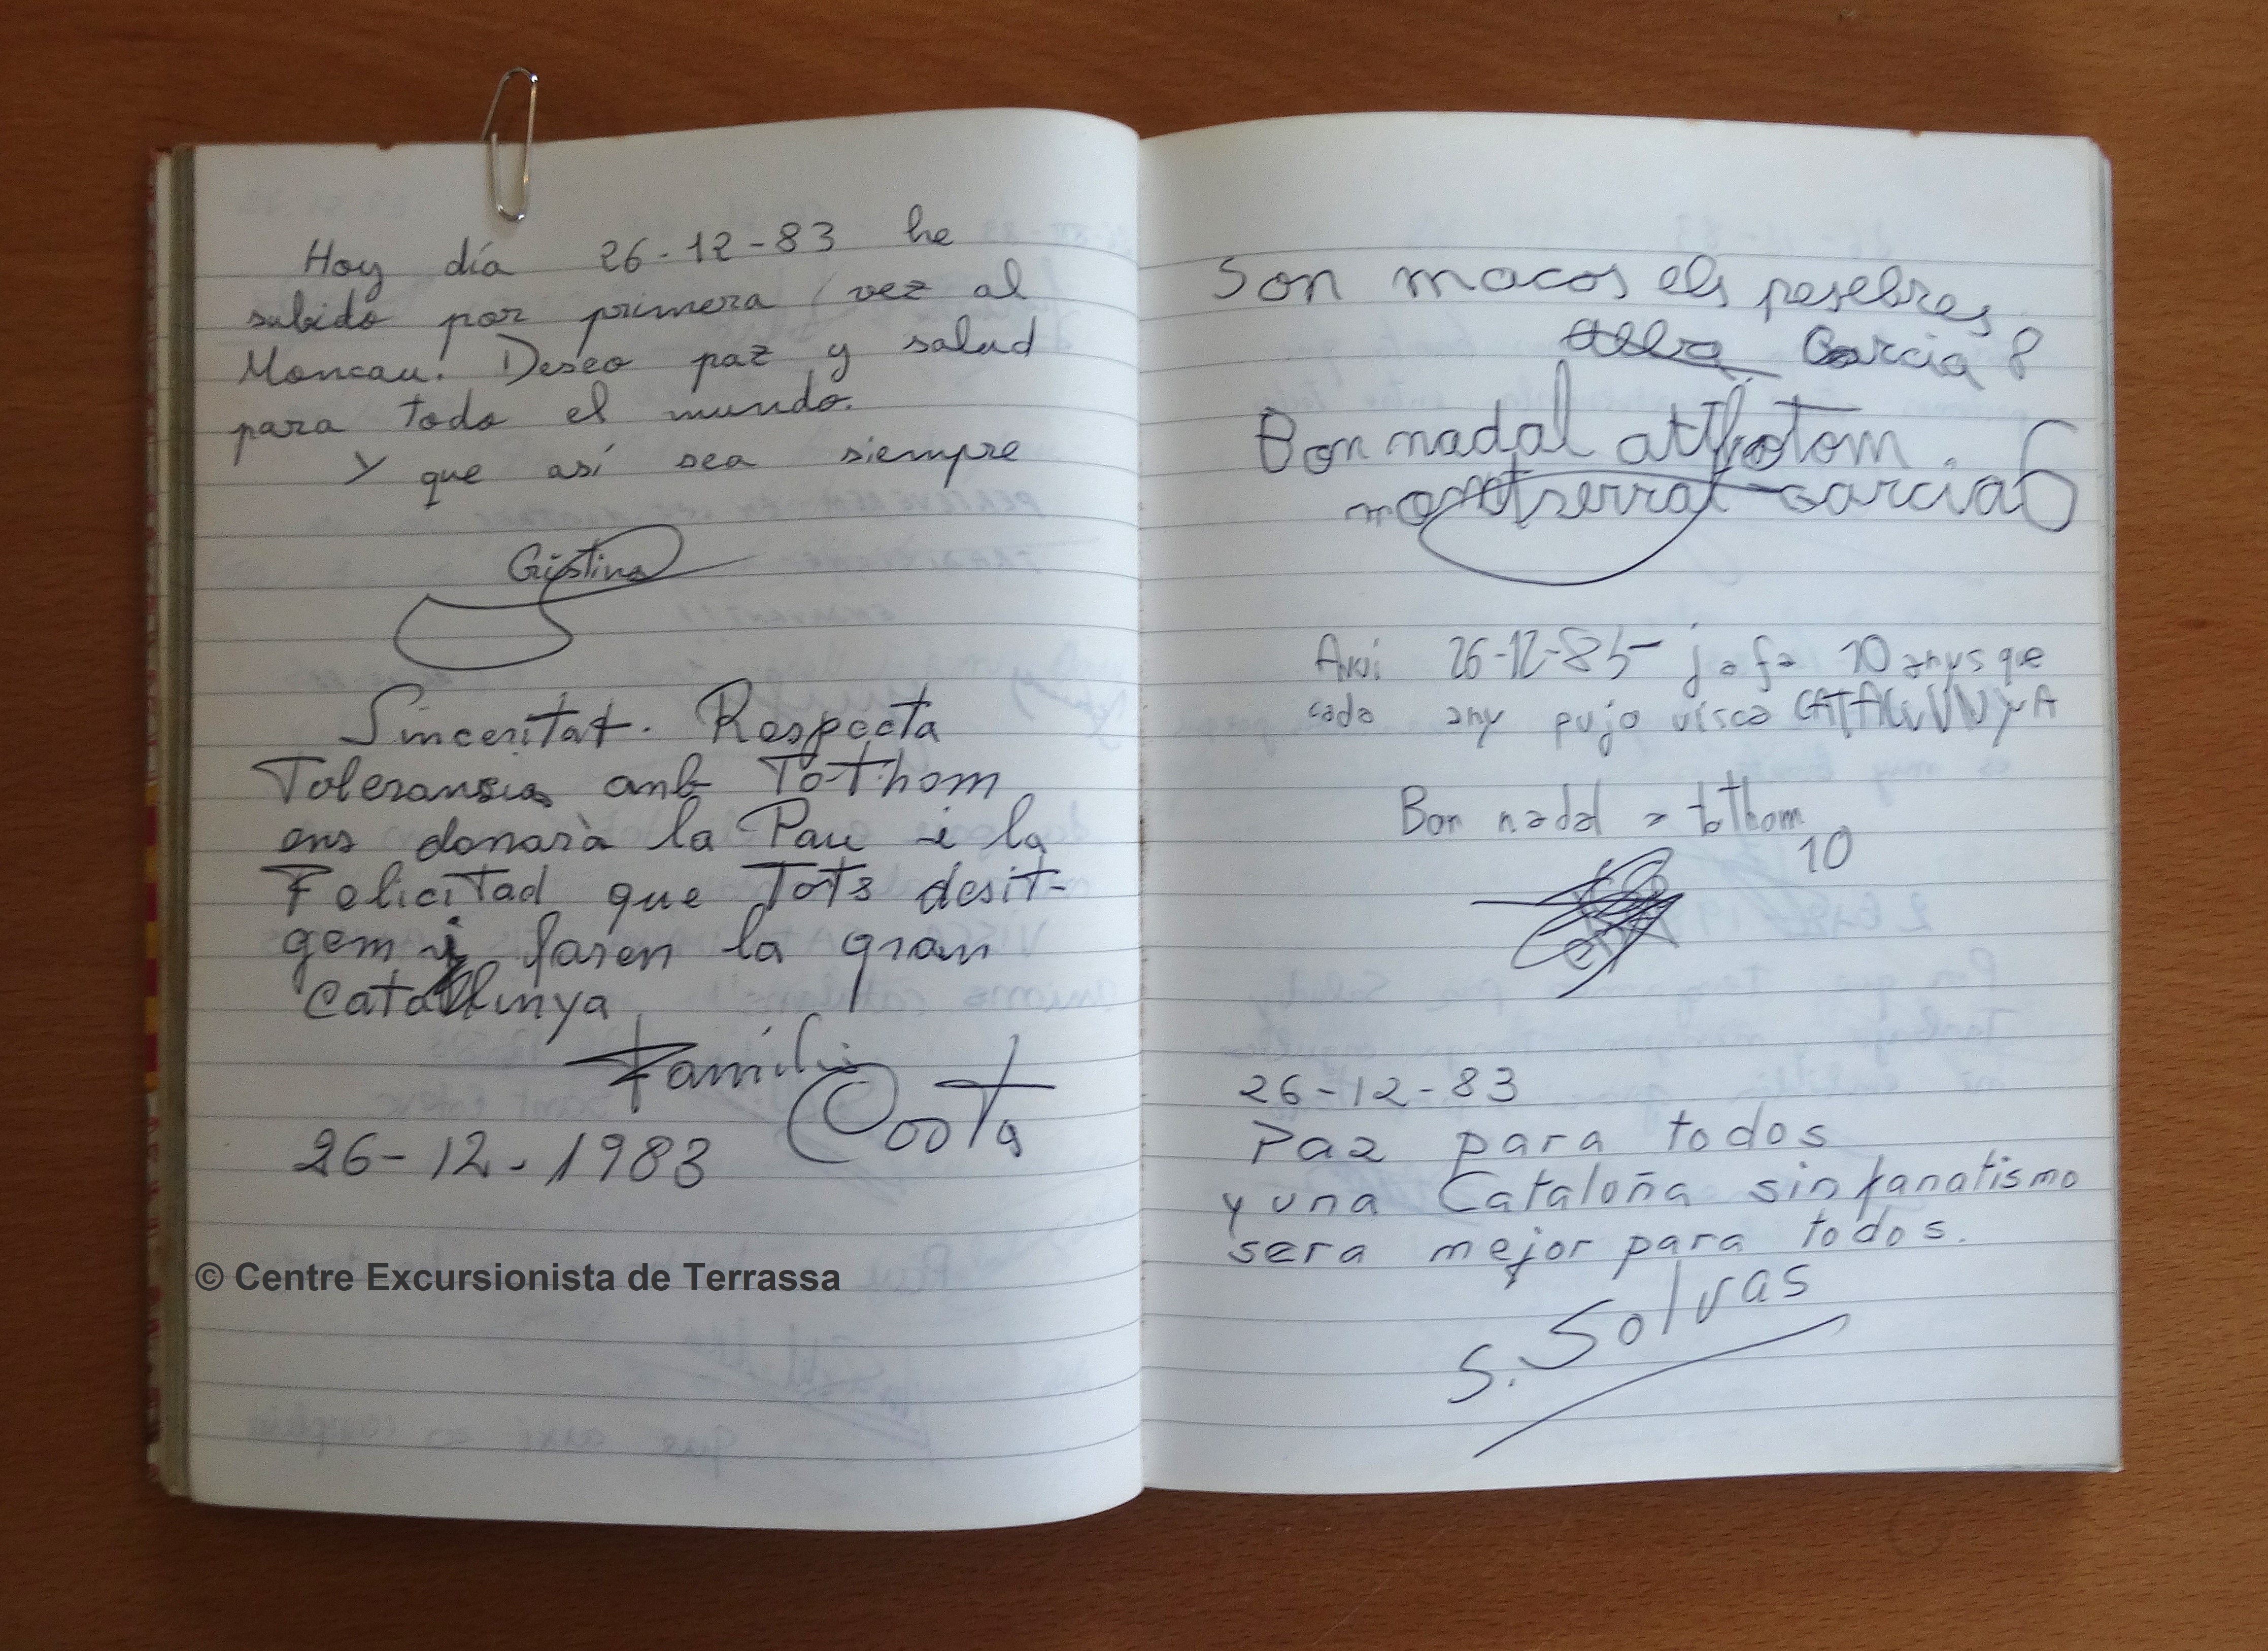 Hoy día 26-12-83 he
subido por primera vez al
Moncau. Deseo paz y salud
para todo el mundo.
Y que así sea siempre
Cristina
Sinceritat. Respecta
Toleransia amb Tothom
ens donarà la Pau i la
Felicitad que Tots desit-
gem i faren la gran
Catallunya
Familia
Costa
26-12-1983
© Centre Excursionista de Terrassa
Son macos els pesebres
Alba Garcia 8
Bon nadal atthotom.
montserrat Garcia 6
Avui 26-12-85 ja fa 10 anys que
cada any pujo visca
Bon nadal a tothom
10
26-12-83
Paz para todos
y una Cataloña sin fanatismo
sera mejor para todos.
S. Solvas